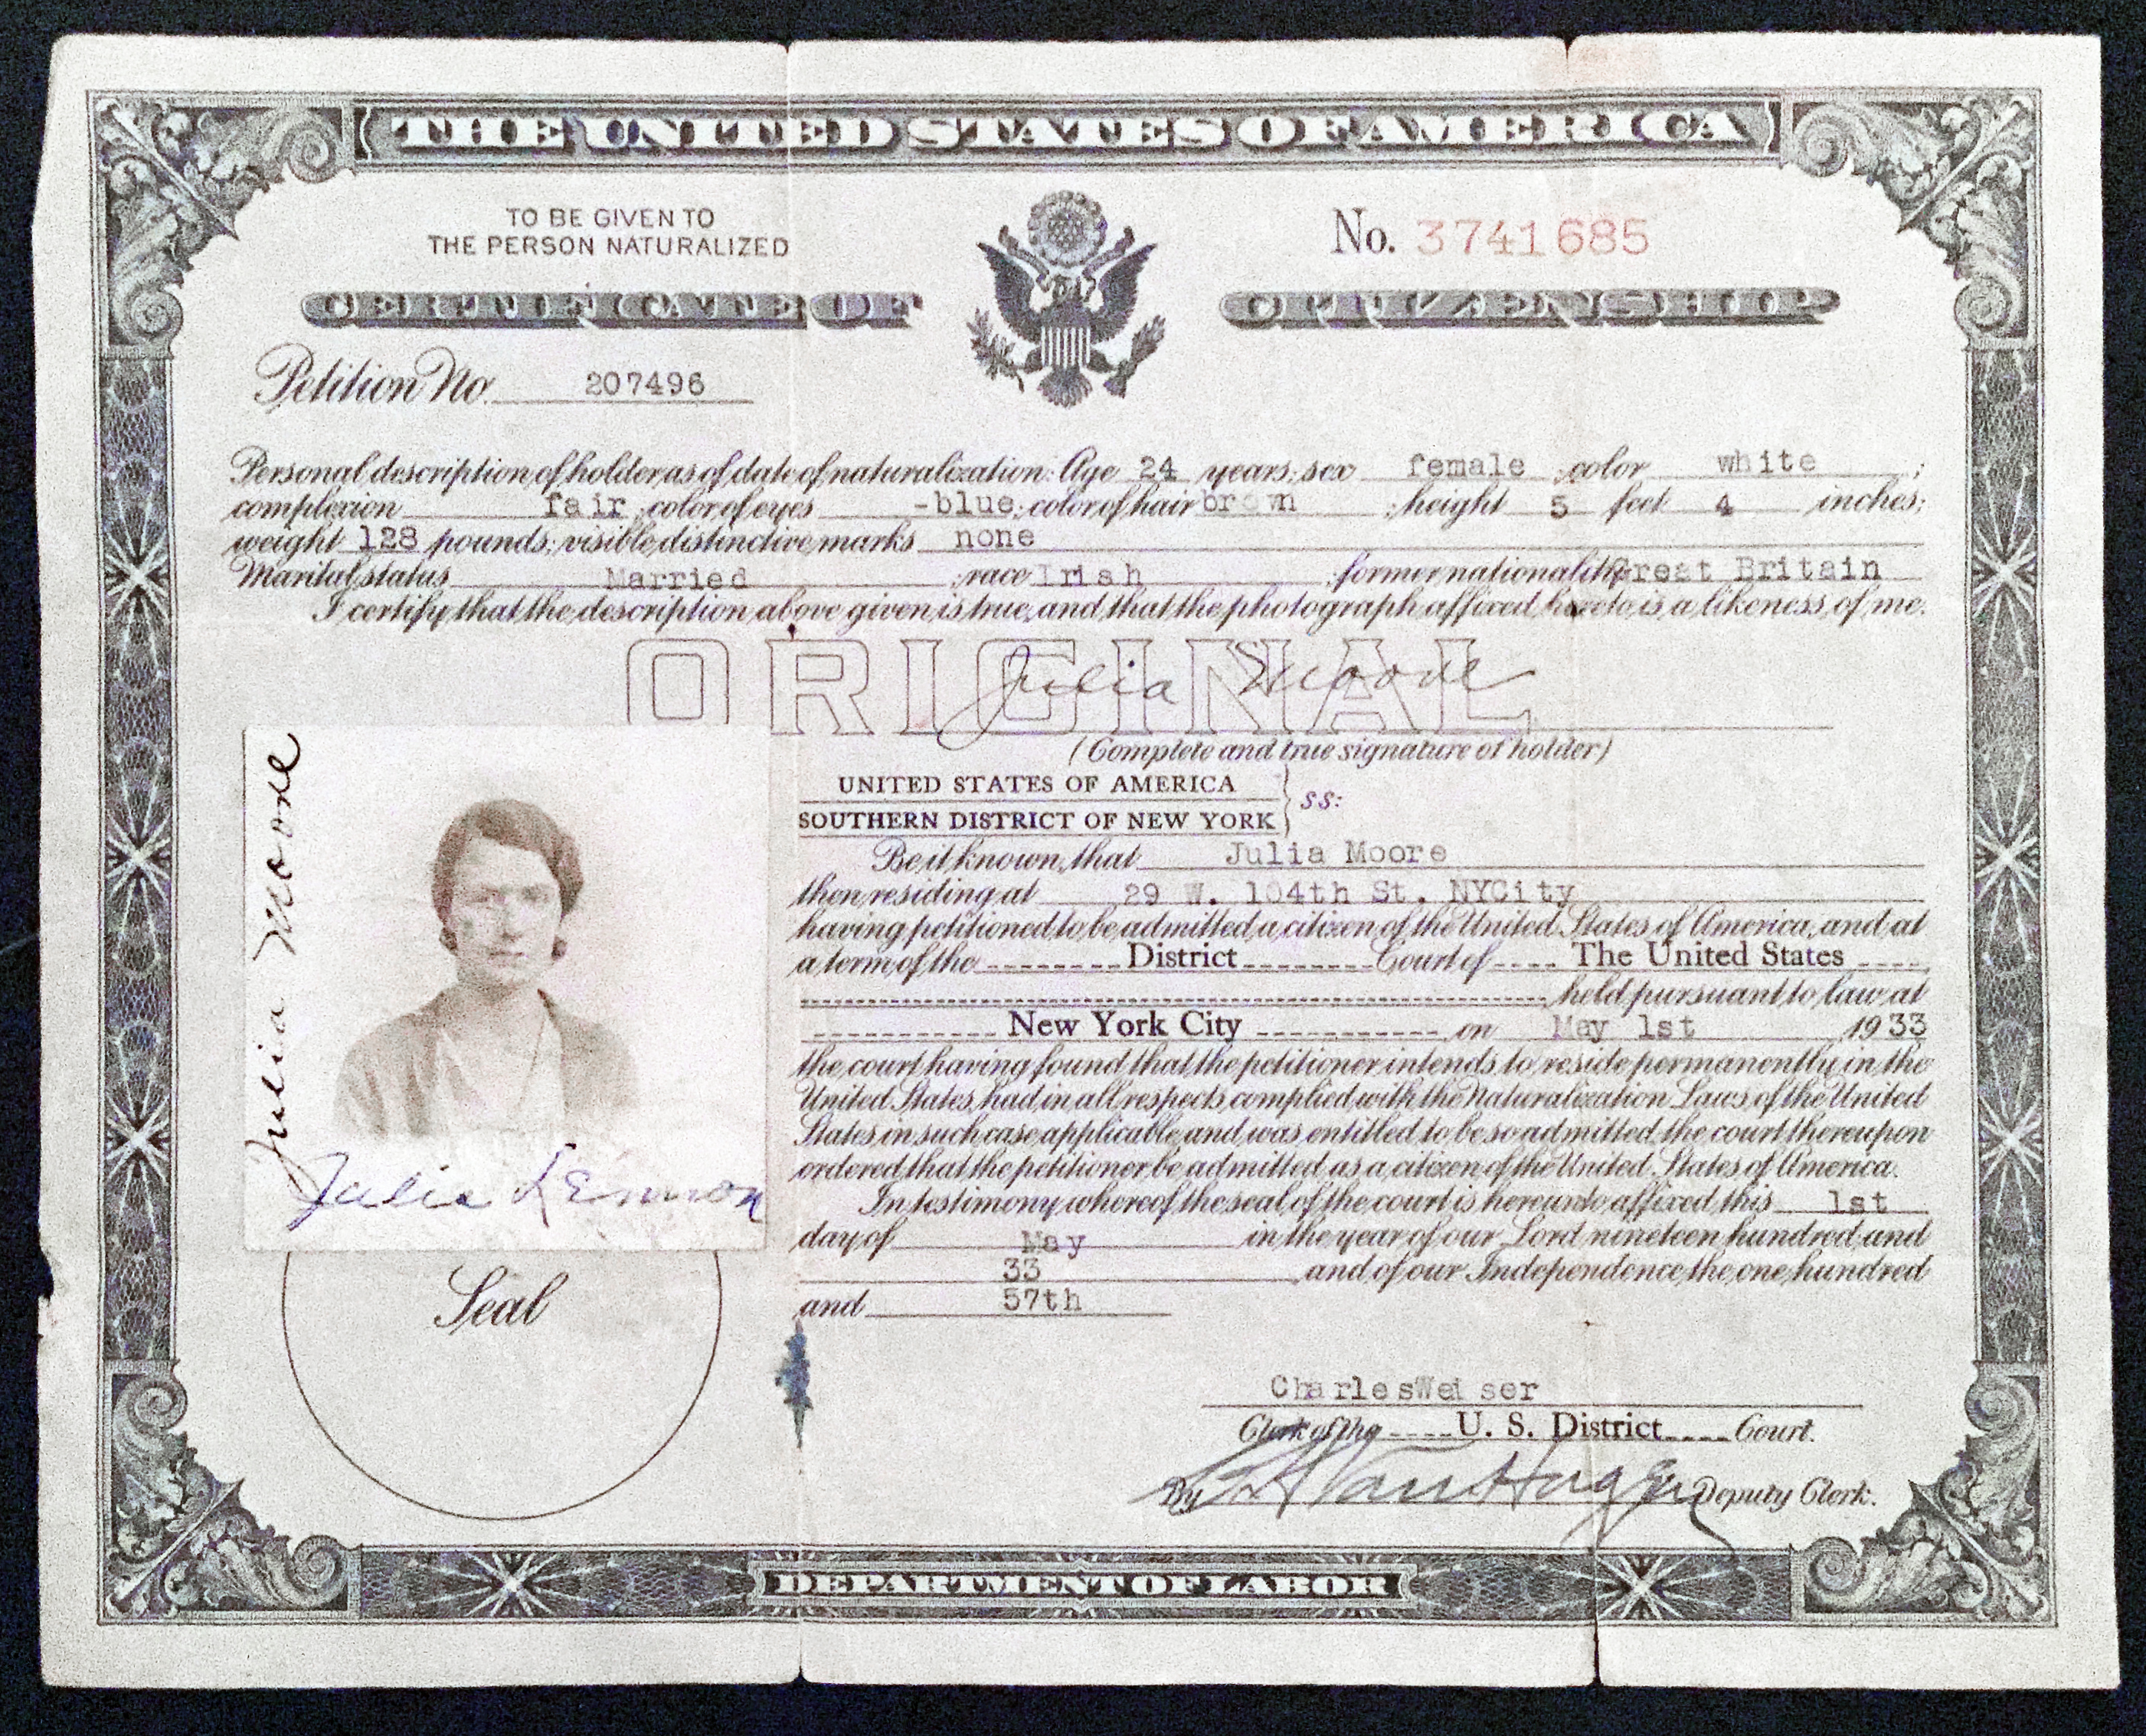 THE UNITED STATES OF AMERICA
TO BE GIVEN TO
THE PERSON NATURALIZED
No. 3741685
CERTIFICATE OF CITIZENSHIP
Petition No. 207496
Personal description of holder as of date of naturalization: Age 24 years; sex female ; color white ;
complexion fair ; color of eyes -blue; color of hair brown ; height 5 feet 4 inches;
weight 128 pounds; visible distinctive marks none
Marital status Married ; race Irish ; former nationality Great Britain
I certify that the description above given is true, and that the photograph affixed hereto is a likeness of me.
ORIGINAL
Julia Moore
(Complete and true signature of holder)
Julia Moore
Julia Lennon
Seal
UNITED STATES OF AMERICA
SOUTHERN DISTRICT OF NEW YORK } ss:
Be it known, that Julia Moore
then residing at 29 W. 104th St. NYCity
having petitioned to be admitted a citizen of the United States of America, and at
a term of the District Court of The United States
held pursuant to law at
New York City on May 1st 1933
the court having found that the petitioner intends to reside permanently in the
United States, had in all respects complied with the Naturalization Laws of the United
States in such case applicable, and was entitled to be so admitted, the court thereupon
ordered that the petitioner be admitted as a citizen of the United States of America.
In testimony whereof the seal of the court is hereunto affixed this 1st
day of May in the year of our Lord nineteen hundred and
33 and of our Independence the one hundred
and 57th
Charles Weiser
Clerk of the U. S. District Court.
By Deputy Clerk.
DEPARTMENT OF LABOR